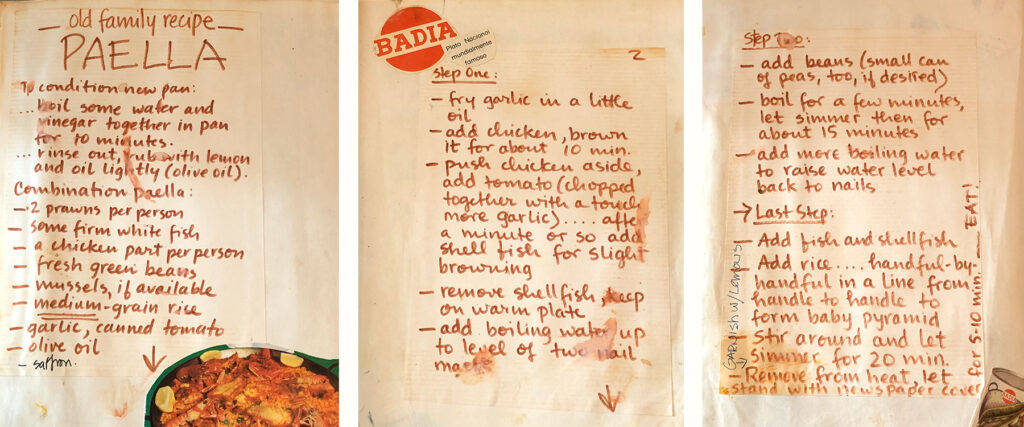 — old family recipe —
PAELLA
To condition new pan:
... boil some water and
vinegar together in pan
for 10 minutes.
... rinse out, rub with lemon
and oil lightly (olive oil).
Combination paella:
— 2 prawns per person
— some firm white fish
— a chicken part per person
— fresh green beans
— mussels, if available
— medium-grain rice
— garlic, canned tomato
— olive oil
- saffron.
BADIA
Plato Nacional
mundialmente
famoso
2
Step One:
— fry garlic in a little
oil
— add chicken, brown
it for about 10 min.
— push chicken aside,
add tomato (chopped
together with a touch
more garlic).... after
a minute or so add
shell fish for slight
browning
— remove shellfish, keep
on warm plate
— add boiling water up
to level of two nail
marks
Step Two:
— add beans (small can
of peas, too, if desired)
— boil for a few minutes,
let simmer then for
about 15 minutes
— add more boiling water
to raise water level
back to nails
→ Last Step:
— Add fish and shellfish
— Add rice.... handful-by-
handful in a line from
handle to handle to
form baby pyramid
— Stir around and let
simmer for 20 min.
— Remove from heat, let
stand with newspaper cover
for 5-10 min. — EAT!
GARNISH w/Lemons!